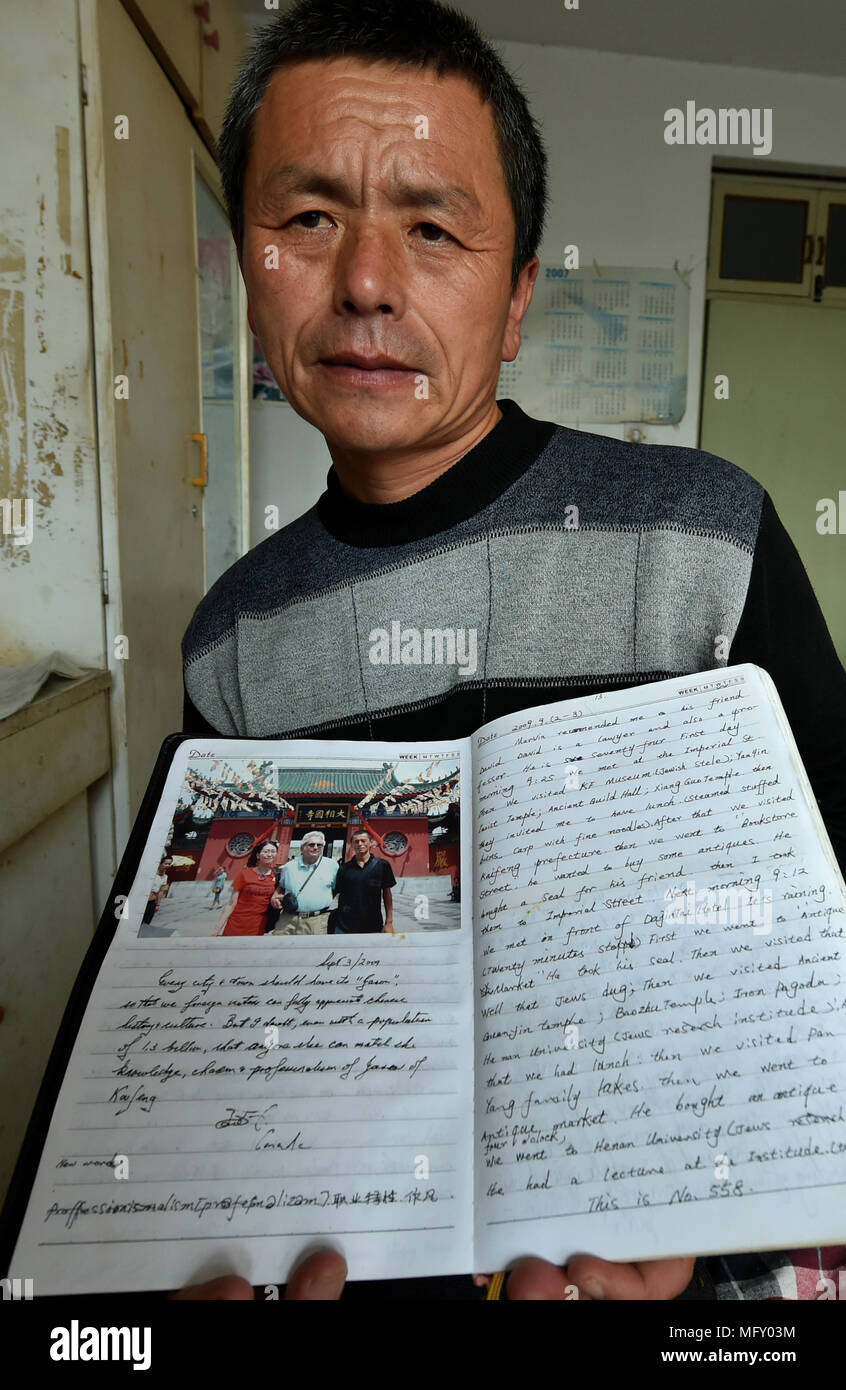 2007
Date
WEEK M T W T F S S
大相國寺
Sept 3/2009
Every city & town should have its "Jason",
so that we foreign visitors can fully appreciate chinese
history & culture. But I doubt, even with a population
of 1.3 billion, that anyone else can match the
knowledge, charm & professionalism of Jason of
Kaifeng
Canada
New word:
职业特性
Date 2009.9.(2-3)
WEEK M T W T F S S
Marvin recommended me a his friend
David. David is a lawyer and also a pro-
fessor. He is seventy four. First day
morning 9:25 we met at the Imperial St.
Then we visited KF Museum (Jewish Stele); Yanqin
Taoist Temple; Ancient Guild Hall; Xiang Guo Temple. then
they invited me to have lunch. (steamed stuffed
buns, carp with fine noodles). After that we visited
Kaifeng prefecture then we went to "Bookstore
Street. he wanted to buy some antiques. He
bought a seal for his friend then I took
them to Imperial Street. Next morning 9:12
we met on front of Hotel. It's raining.
(Twenty minutes stops) First we went to "Antique
Market" He took his seal. Then we visited that
well that Jews dug; Then we visited Ancient
Guanyin temple; Baozhu Temple; Iron Pagoda;
He nan University (Jews research institude);
that we had lunch. then we visited Pan
Yang family lakes. then we went to
Antique market. He bought an antique
four o'clock,
We went to Henan University (Jews
He had a lecture at Institude.
This is No. 558.
alamy
alamy
Image ID: MFY03M
www.alamy.com